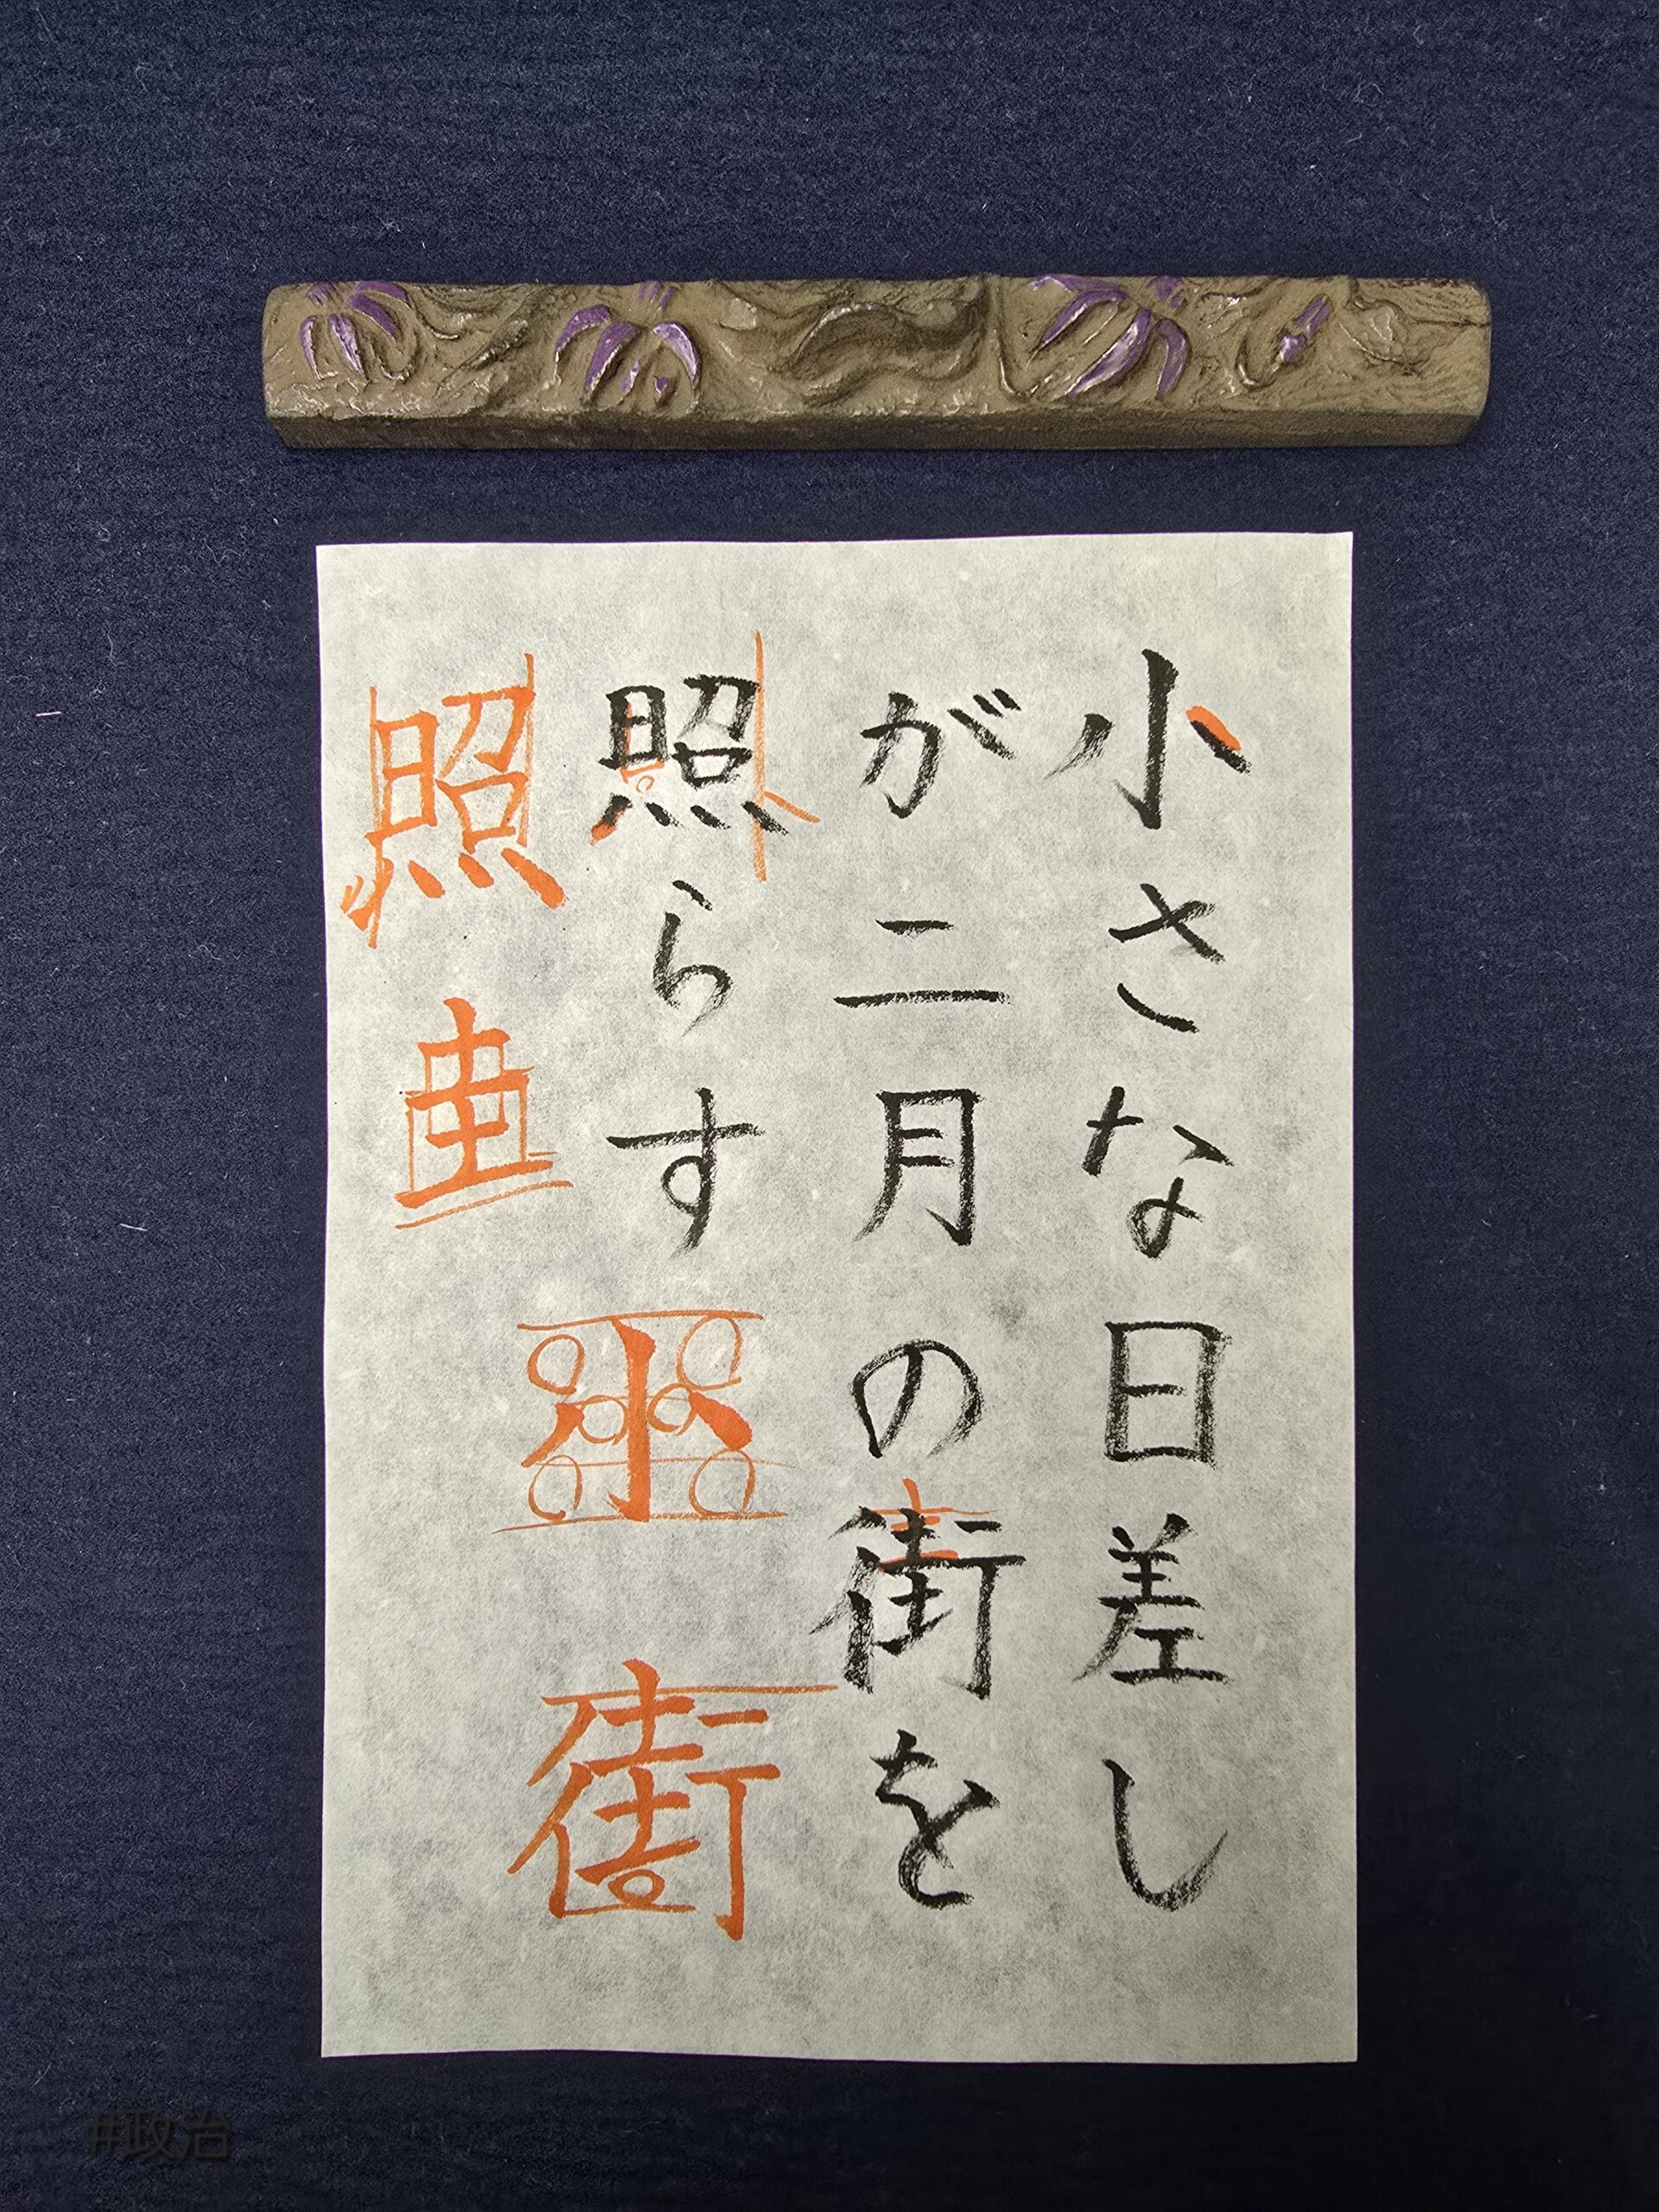 小さな日差し
が二月の街を
照らす
照
圭
小
街
#政治